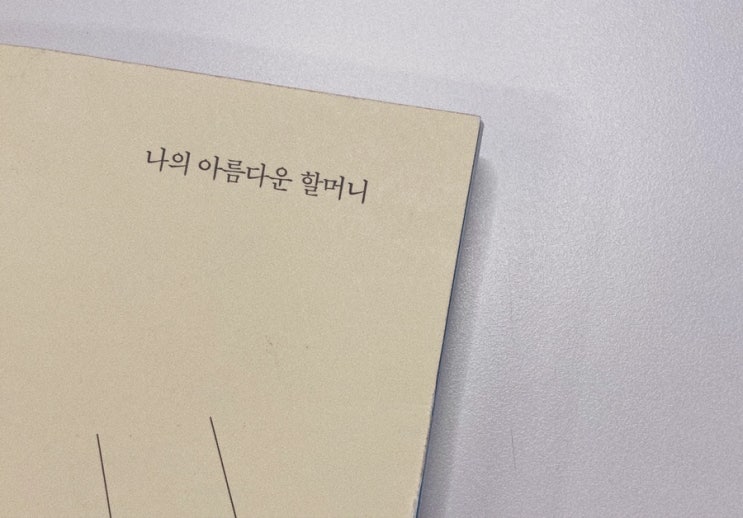 나의 아름다운 할머니